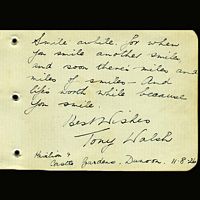 Smile awhile. for when
you smile another smiles
and soon there's miles and
miles of smiles - And
life's worth while because
you smile.
Best Wishes
Tony Walsh
Castle Gardens. Dunoon. 11-8-26